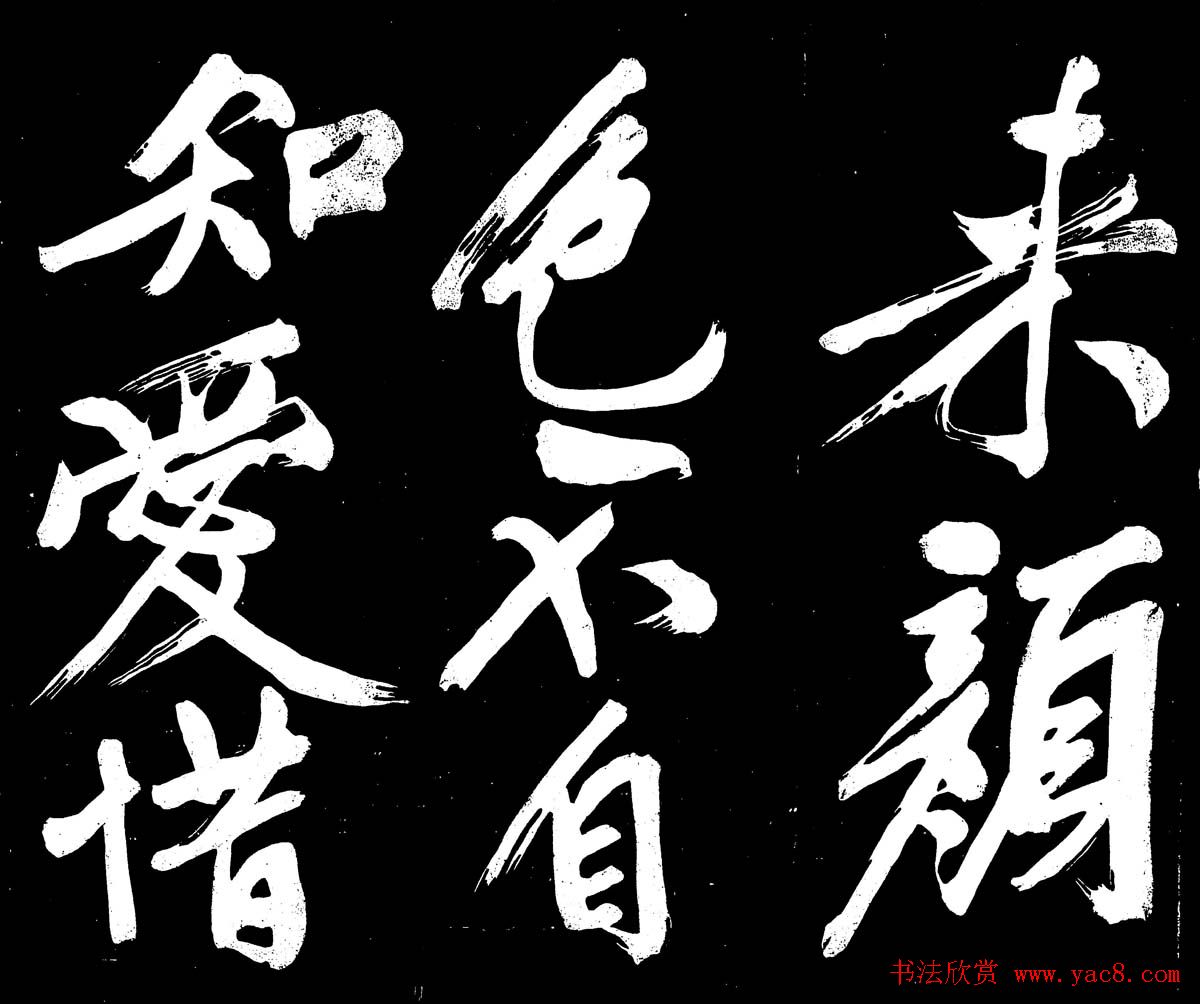 来颜
色不自
知爱惜
书法欣赏 www.yac8.com